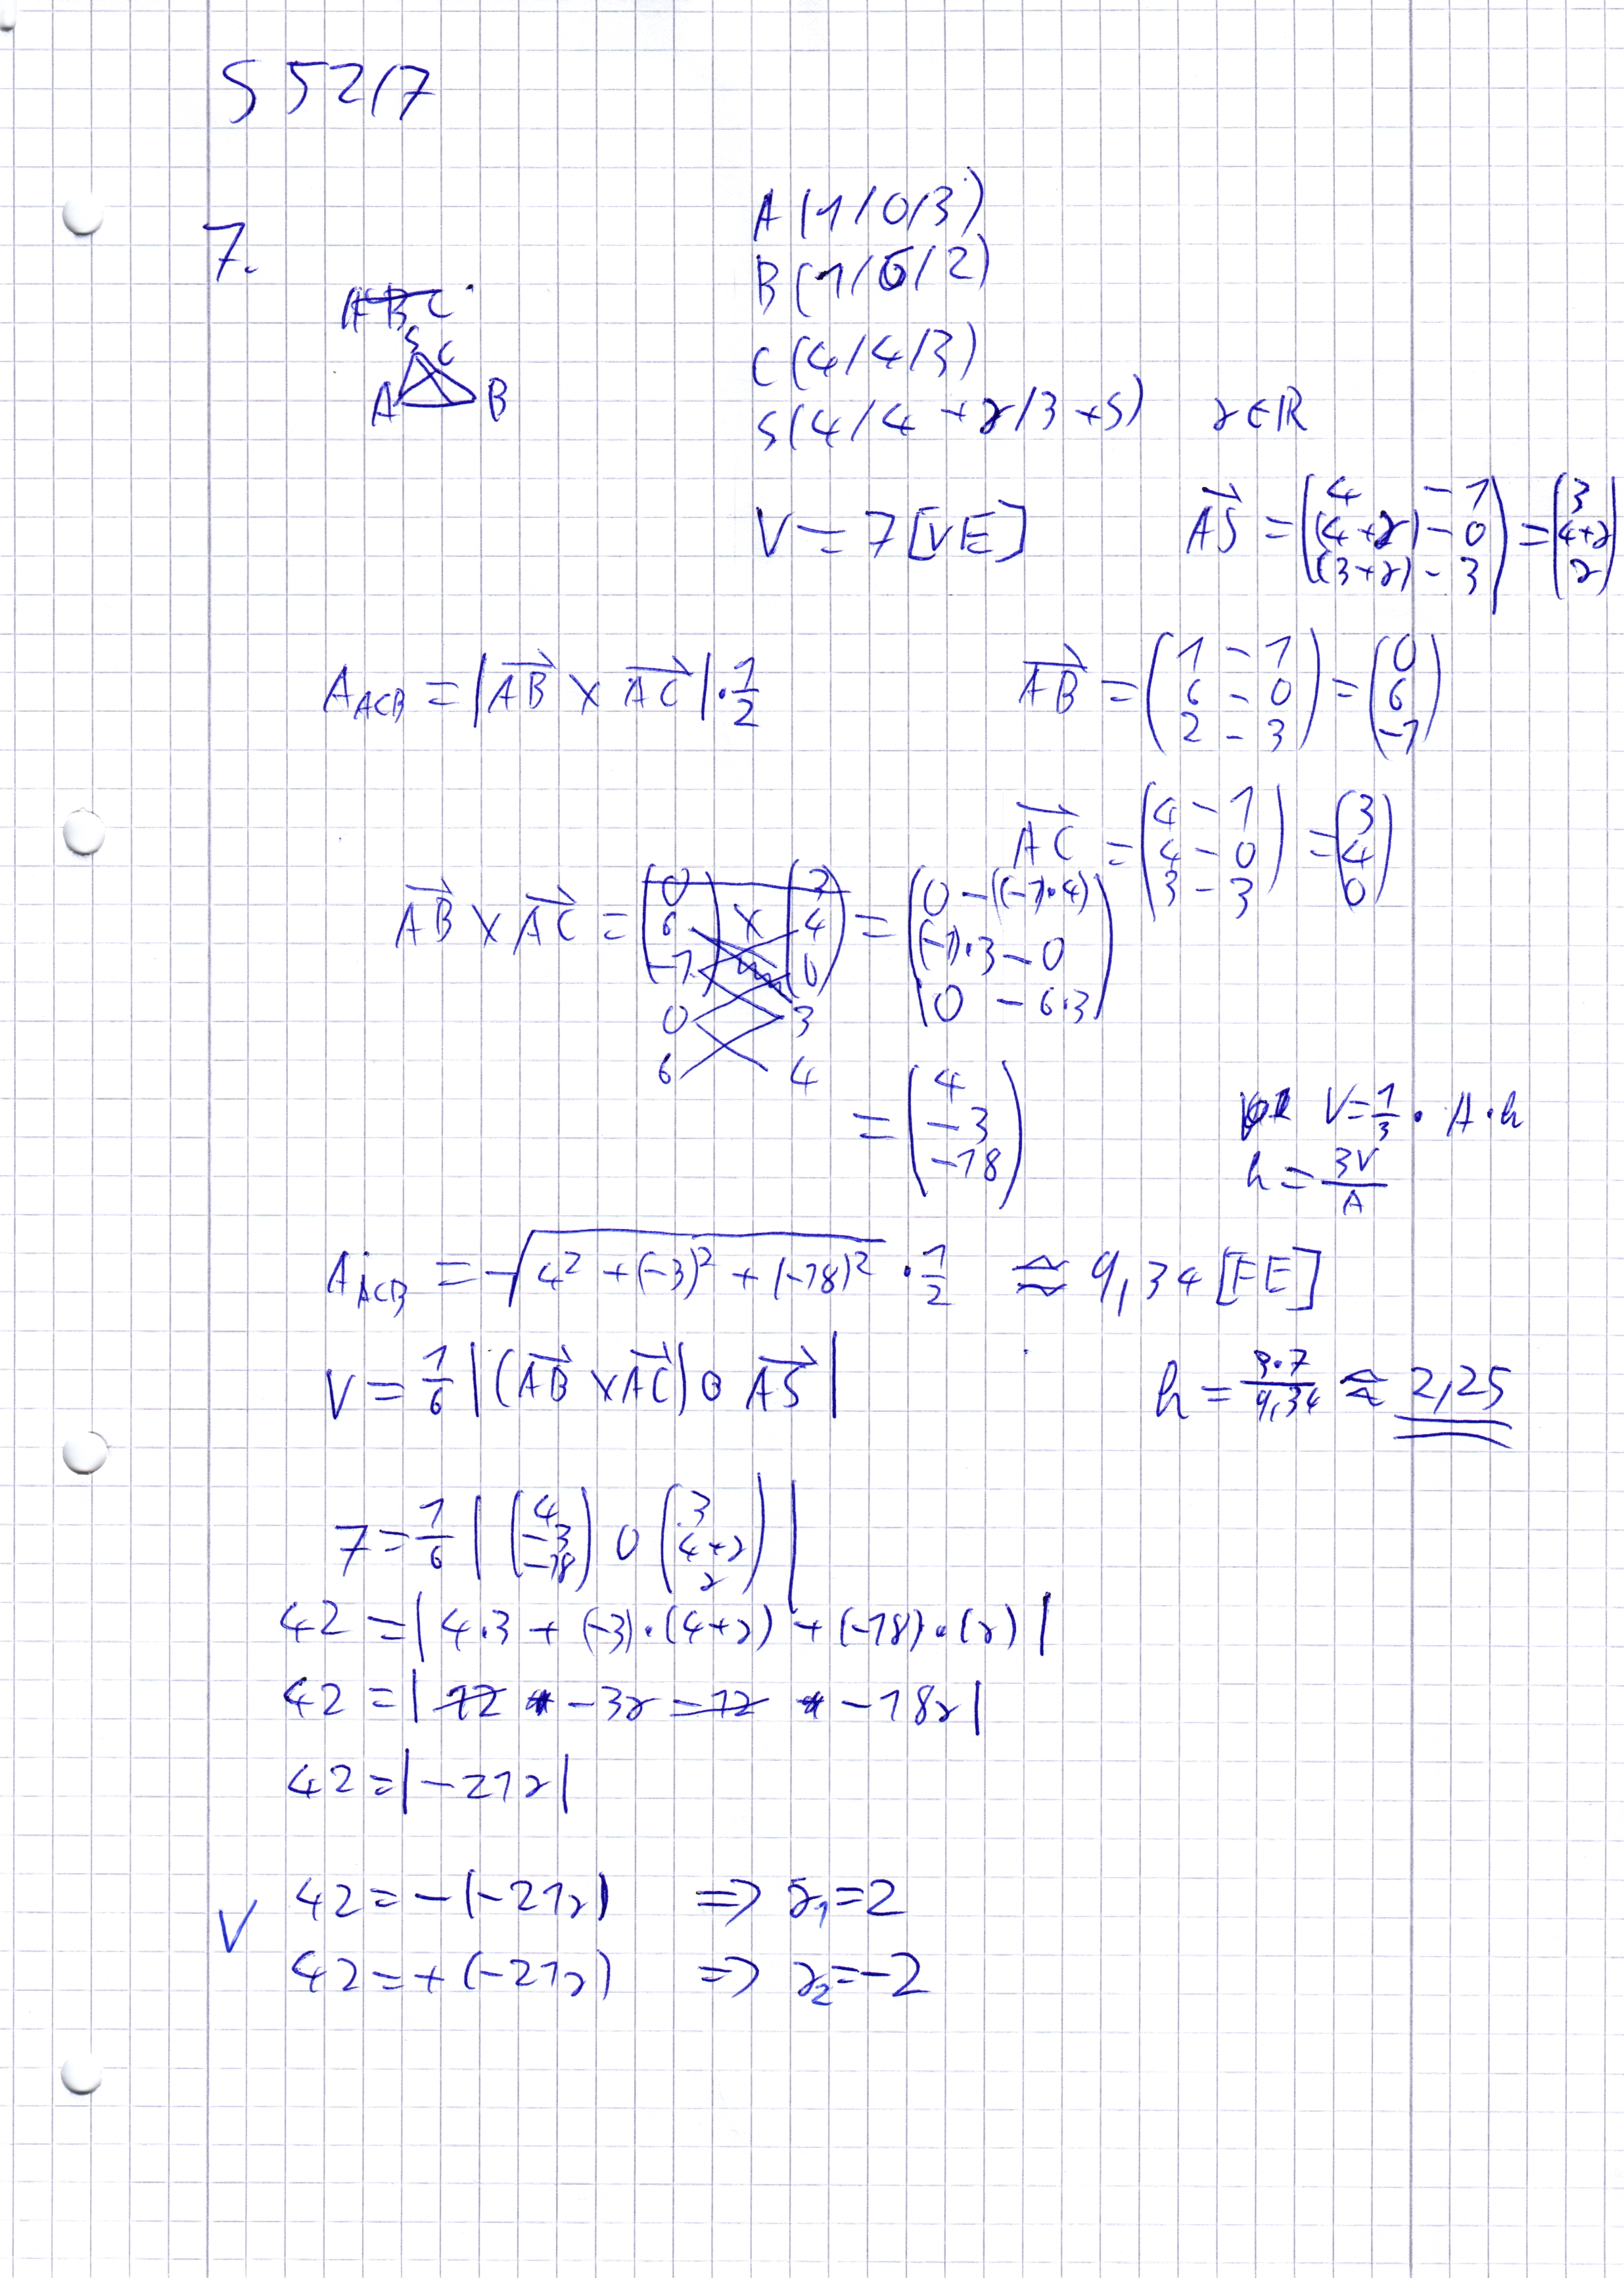 S 52/7
7.
A (1/0/3)
B (1/6/2)
C (4/4/3)
S (4/4+r/3+s) r∈ℝ
A B C
S C
A B
V = 7 [VE]
AS⃗ = (4 - 1 / (4+r) - 0 / (3+r) - 3) = (3 / 4+r / r)
A_ACB = |AB⃗ × AC⃗| · 1/2
AB⃗ = (1 - 1 / 6 - 0 / 2 - 3) = (0 / 6 / -1)
AC⃗ = (4 - 1 / 4 - 0 / 3 - 3) = (3 / 4 / 0)
AB⃗ × AC⃗ = (0 / 6 / -1) × (3 / 4 / 0) = (0 - ((-1)·4) / (-1)·3 - 0 / 0 - 6·3)
0 3
6 4
= (4 / -3 / -18)
V = 1/3 · A · h
h = 3V/A
A_ACB = √(4² + (-3)² + (-18)²) · 1/2 ≈ 9,34 [FE]
V = 1/6 |(AB⃗ × AC⃗) ∘ AS⃗|
h = 3·7/9,34 ≈ 2,25
7 = 1/6 |(4 / -3 / -18) ∘ (3 / 4+r / r)|
42 = |4·3 + (-3)·(4+r) + (-18)·(r)|
42 = |12 - 3r - 12 - 18r|
42 = |-21r|
V 42 = -(-21r) => r₁ = 2
42 = +(-21r) => r₂ = -2